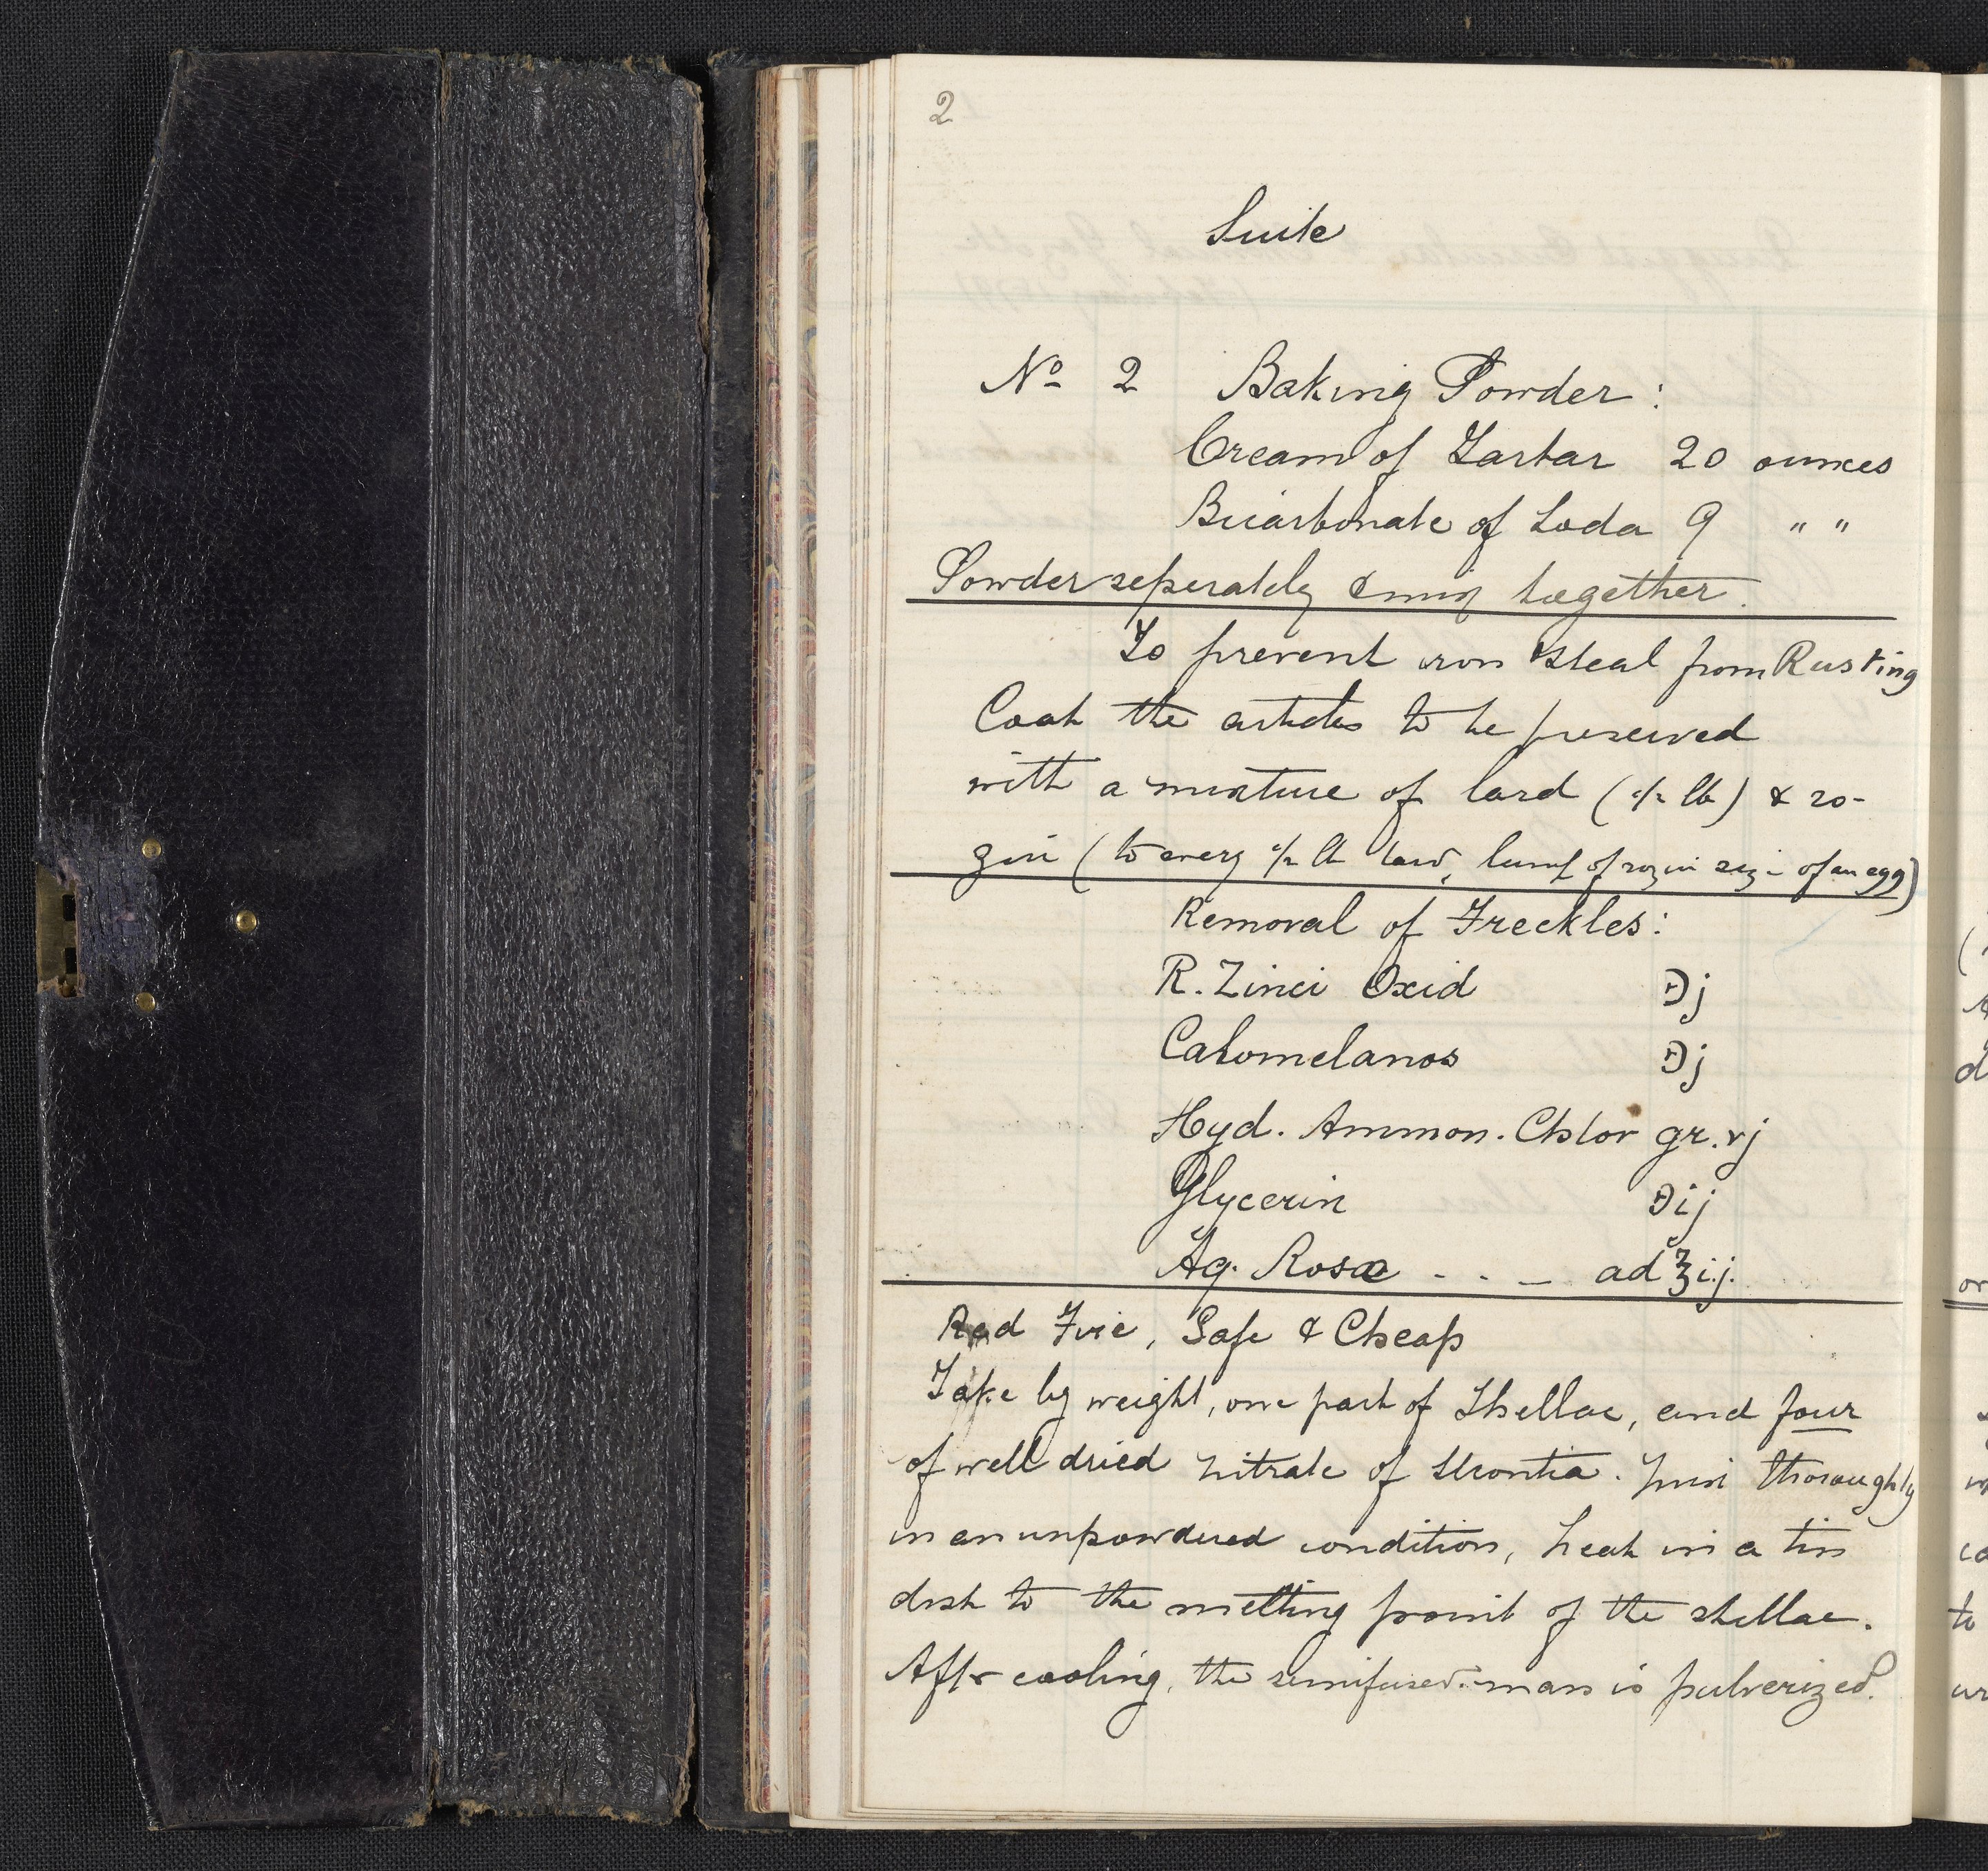 2
Suite
No 2 Baking Powder:
Cream of Tartar 20 ounces
Bicarbonate of Soda 9 " "
Powder seperately & mix together.
To prevent iron & steal from Rusting
Coat the articles to be preserved
with a mixture of lard (1/2 lb) & ro-
zin (to every 1/2 lb lard, lump of rozin size of an egg)
Removal of Freckles:
R. Zinci Oxid ℈j
Calomelanos ℈j
Hyd. Ammon. Chlor gr. vj
Glycerin ℈ij
Aq. Rosæ - - - ad ℥ij.
Red Fire, Safe & Cheap
Take by weight, one part of Shellac, and four
of well dried nitrate of Strontia. Mix thoroughly
in an unpowdered condition, heat in a tin
dish to the melting point of the shellac.
After cooling, the semifused mass is pulverized.